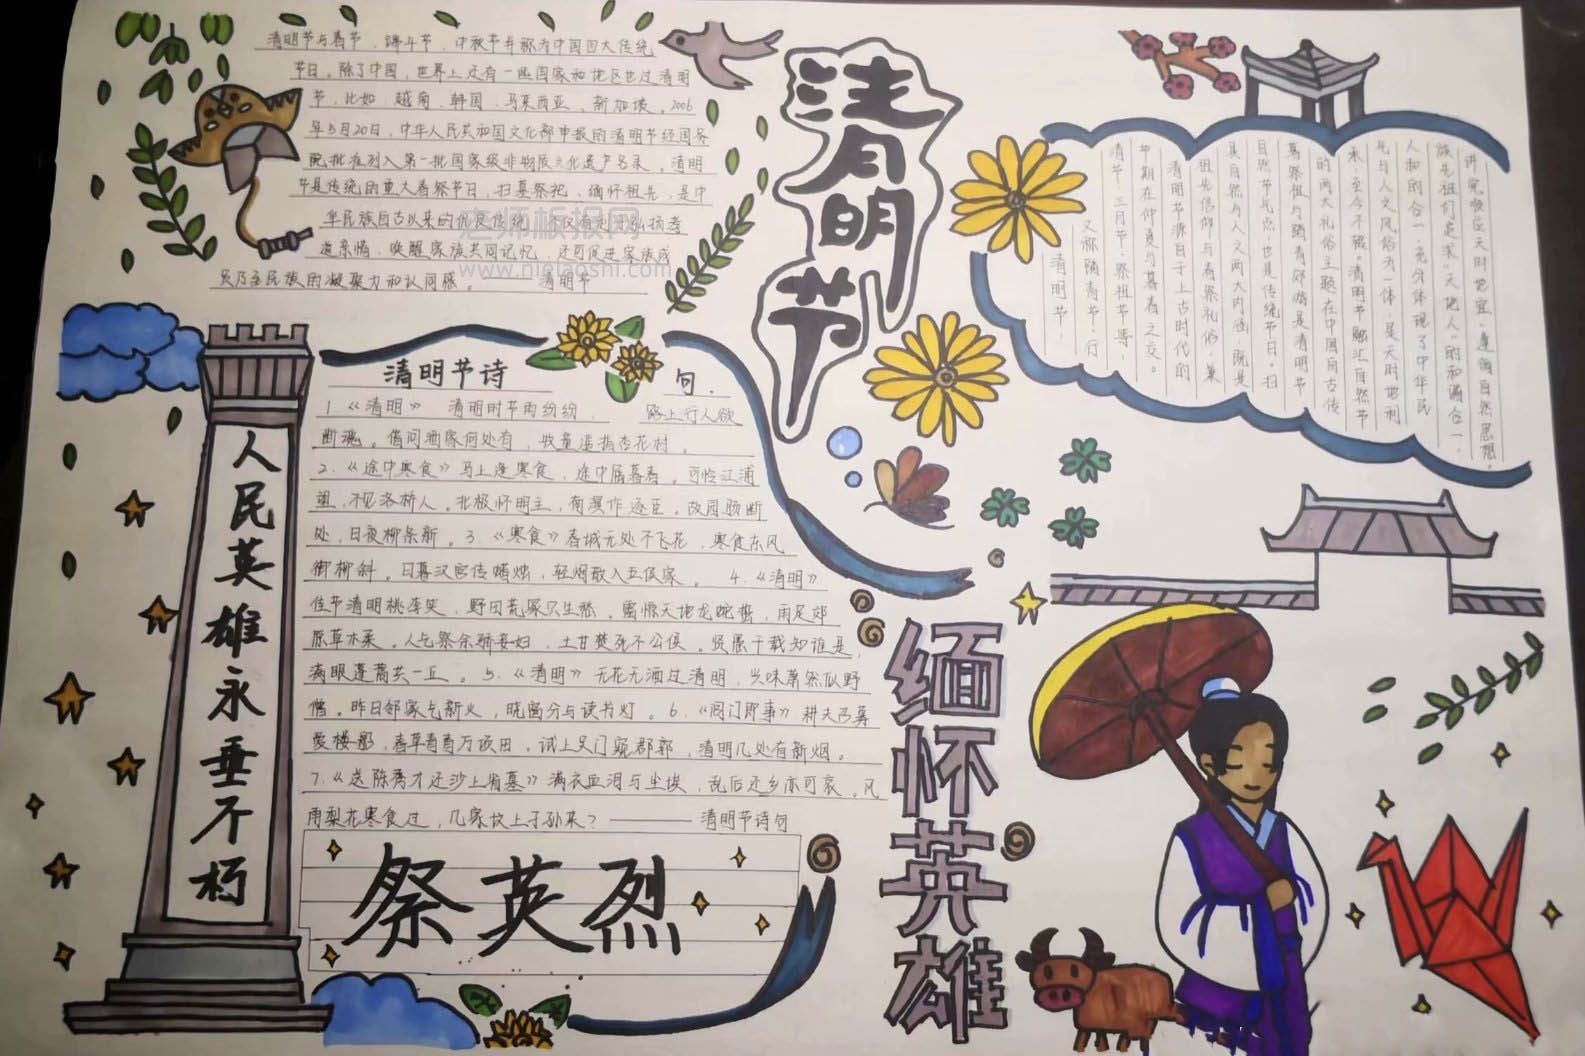 清明节与春节、端午节、中秋节并称为中国四大传统
节日。除了中国，世界上还有一些国家和地区也过清明
节，比如、越南、韩国、马来西亚、新加坡。2006
年5月20日，中华人民共和国文化部申报的清明节经国务
院批准列入第一批国家级非物质文化遗产名录。清明
节是传统的重大春祭节日，扫墓祭祀、缅怀祖先，是中
华民族自古以来的优良传统
道亲情、唤醒家族共同记忆，还可促进家族成
员乃至民族的凝聚力和认同感。——清明节
老师板报网
www.nielaoshi.com
清明节
讲究顺应天时地宜、遵循自然思想。
族先祖们追求“天地人”的和谐合一，
人和的合一，充分体现了中华民
气与人文风俗为一体，是天时地利
来，至今不辍。清明节融汇自然节
的两大礼俗主题在中国自古传
墓祭祖与踏青郊游是清明节
自然节气点，也是传统节日，扫
具自然与人文两大内涵，既是
祖先信仰与春祭礼俗，兼
清明节源自于上古时代的
节期在仲春与暮春之交。
清节、三月节、祭祖节等，
又称踏青节、行
清明节，
清明节诗句.
1.《清明》 清明时节雨纷纷， 路上行人欲
断魂。借问酒家何处有，牧童遥指杏花村。
2.《途中寒食》马上逢寒食，途中属暮春。可怜江浦
望，不见洛桥人。北极怀明主，南溟作逐臣。故园肠断
处，日夜柳条新。3.《寒食》春城无处不飞花，寒食东风
御柳斜。日暮汉宫传蜡烛，轻烟散入五侯家。 4.《清明》
佳节清明桃李笑，野田荒冢只生愁。雷惊天地龙蛇蛰，雨足郊
原草木柔。人乞祭余骄妾妇，士甘焚死不公侯。贤愚千载知谁是，
满眼蓬蒿共一丘。5.《清明》无花无酒过清明，兴味萧然似野
僧。昨日邻家乞新火，晓窗分与读书灯。6.《闾门即事》耕夫召募
爱楼船，春草青青万顷田，试上吴门窥郡郭，清明几处有新烟。
7.《送陈秀才还沙上省墓》满衣血泪与尘埃，乱后还乡亦可哀。风
雨梨花寒食过，几家坟上子孙来？———清明节诗句
人民英雄永垂不朽
祭英烈
缅怀英雄